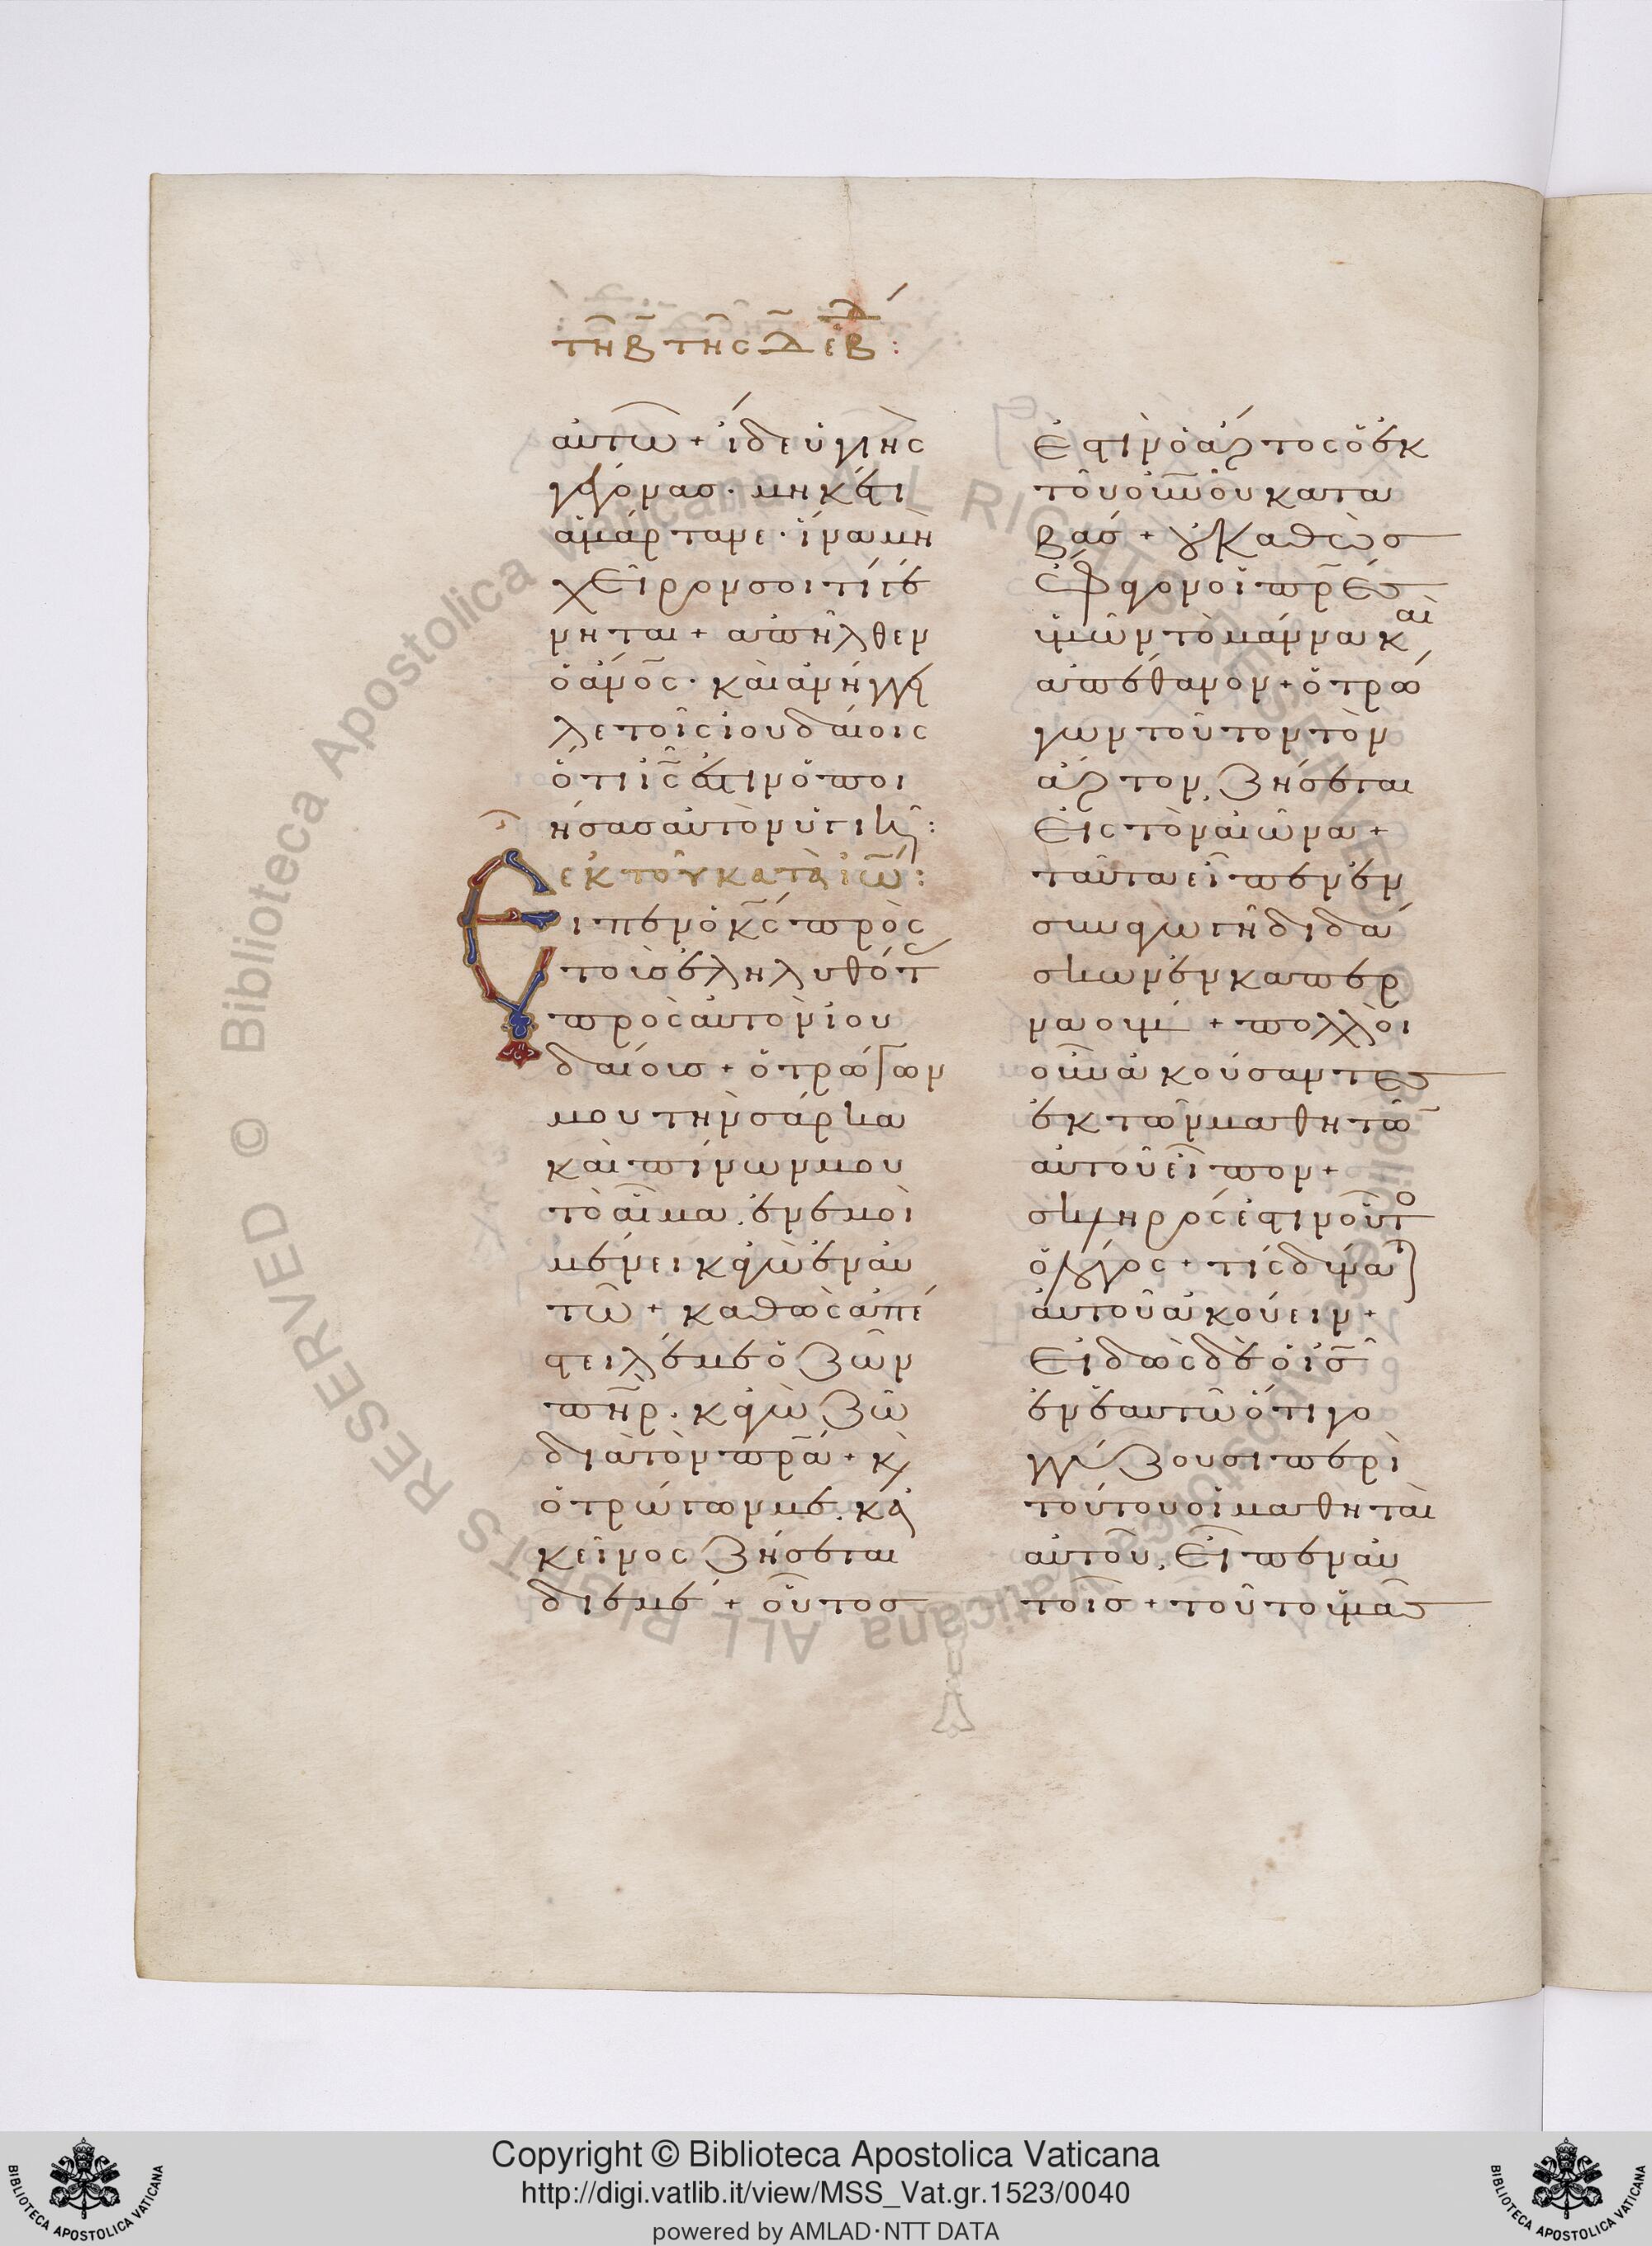 τῆ β τῆς δ ἑβδ:
αὐτῶ + ἴδε ὑγιὴς
γέγονας · μηκέτι
ἁμάρτανε · ἵνα μὴ
χεῖρον σοί τί γέ
νηται + ἀπῆλθεν
ὁ ἄν̅ο̅ς · καὶ ἀνήγγει
λε τοῖς ἰουδαίοις
ὅτι ι̅ς̅ ἐστιν ὁ ποι
ήσας αὐτὸν ὑγιῆ:
ἐκ τοῦ κατὰ ἰω̅:
Εἶπεν ὁ κ̅ς̅ πρὸς
τοὺς ἐληλυθότ
πρὸς αὐτὸν ἰου
δαίους + ὁ τρώγων
μου τὴν σάρκα
καὶ πίνων μου
τὸ αἷμα, ἐν ἐμοὶ
μένει κἀγὼ ἐν αὐ
τῶ + καθὼς ἀπέ
στειλέ με ὁ ζῶν
π̅η̅ρ · κἀγὼ ζῶ
διὰ τὸν π̅ρ̅α̅ + κ
ὁ τρώγων με, κἀ
κεῖνος ζήσεται
δι ἐμέ + οὗτος
ἐστὶν ὁ ἄρτος ὁ ἐκ
τοῦ οὐνοῦ κατα
βάς + οὐ καθὼς
ἔφαγον οἱ π̅ρ̅ες
ὑμῶν τὸ μάννα καὶ
ἀπέθανον + ὁ τρώ
γων τοῦτον τὸν
ἄρτον, ζήσεται
εἰς τὸν αἰῶνα +
ταῦτα εἶπεν ἐν
συναγωγῆ διδά
σκων ἐν καπερ
ναούμ + πολλοὶ
οὖν ἀκούσαντες
ἐκ τῶν μαθητῶ
αὐτοῦ εἶπον +
σκληρός ἐστιν οὗτο
ὁ λόγος + τίς δύνα
αὐτοῦ ἀκούειν +
εἰδὼς δὲ ὁ ι̅ς̅
ἐν ἑαυτῶ ὅτι γο
γγύζουσι περὶ
τούτου οἱ μαθηταὶ
αὐτοῦ, εἶπεν αὐ
τοῖς + τοῦτο ὑμᾶς
Copyright © Biblioteca Apostolica Vaticana
http://digi.vatlib.it/view/MSS_Vat.gr.1523/0040
powered by AMLAD·NTT DATA
BIBLIOTECA APOSTOLICA VATICANA
BIBLIOTECA APOSTOLICA VATICANA
Biblioteca Apostolica Vaticana ALL RIGHTS RESERVED ©
Biblioteca Apostolica Vaticana ALL RIGHTS RESERVED ©